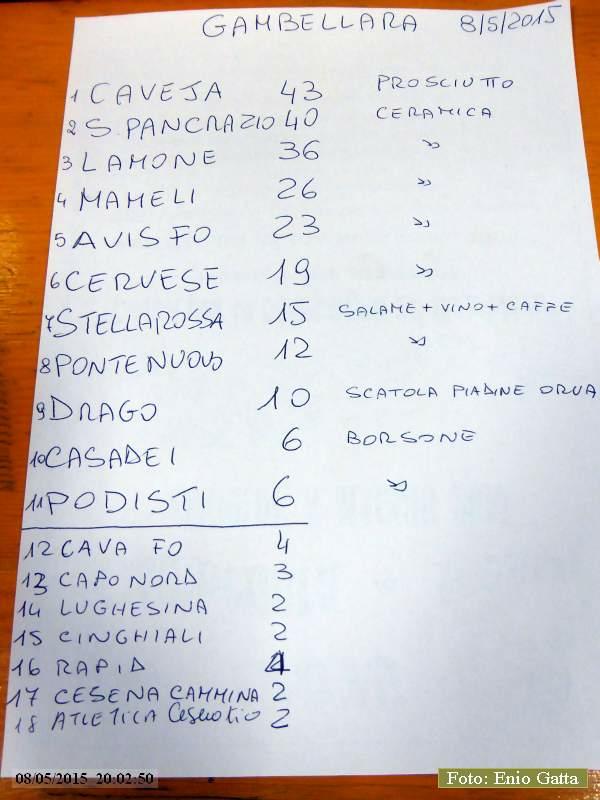 GAMBELLARA 8/5/2015
1 CAVEJA 43 PROSCIUTTO
2 S. PANCRAZIO 40 CERAMICA
3 LAMONE 36 »
4 MAMELI 26 »
5 AVIS FO 23 »
6 CERVESE 19 »
7 STELLAROSSA 15 SALAME + VINO + CAFFE
8 PONTE NUOVO 12 »
9 DRAGO 10 SCATOLA PIADINE ORVA
10 CASADEI 6 BORSONE
11 PODISTI 6 »
12 CAVA FO 4
13 CAPO NORD 3
14 LUGHESINA 2
15 CINGHIALI 2
16 RAPID
17 CESENA CAMMINA 2
18 ATLETICA 2
08/05/2015 20:02:50
Foto: Enio Gatta